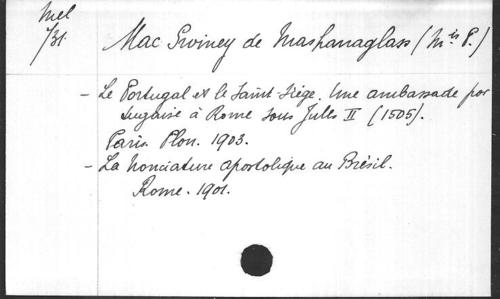 Mel
/31.
Mac Swiney de Mashanaglass (Mis P.)
- Le Portugal et le Saint-Siége. Une ambassade por
tugaise à Rome sous Jules II (1505).
Paris. Plon. 1903.
- La Nonciature apostolique au Brésil.
Rome. 1901.